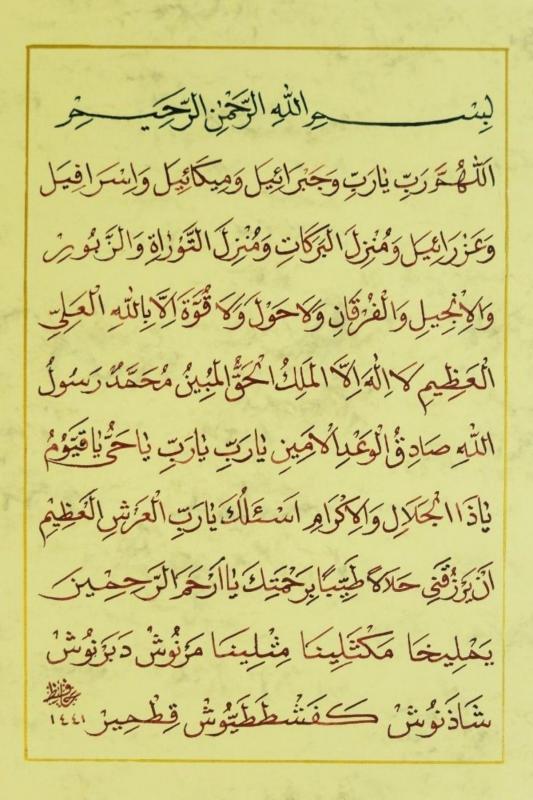 بِسْمِ اللّٰهِ الرَّحْمٰنِ الرَّحِيمِ
اَللّٰهُمَّ رَبِّ يَارَبِّ وَجَبْرَائِيلَ وَمِيكَائِيلَ وَاِسْرَافِيلَ
وَعَزْرَائِيلَ وَمُنْزِلَ الْبَرَكَاتِ وَمُنْزِلَ التَّوْرَاةِ وَالزَّبُورِ
وَالْاِنْجِيلِ وَالْفُرْقَانِ وَلَاحَوْلَ وَلَا قُوَّةَ اِلَّا بِاللّٰهِ الْعَلِىِّ
الْعَظِيمِ لَا اِلٰهَ اِلَّا الْمَلِكُ الْحَقُّ الْمُبِينُ مُحَمَّدٌ رَسُولُ
اللّٰهِ صَادِقُ الْوَعْدِ الْاَمِينِ يَارَبِّ يَارَبِّ يَاحَىُّ يَاقَيُّومُ
يَاذَا الْجَلَالِ وَالْاِكْرَامِ اَسْئَلُكَ يَارَبِّ الْعَرْشِ الْعَظِيمِ
اَنْ يَرْزُقَنِى حَلَالًا طَيِّبًا بِرَحْمَتِكَ يَااَرْحَمَ الرَّاحِمِينَ
يَمْلِيخَا مَكْثَلِينَا مِثْلِينَا مَرْنُوشْ دَبَرْنُوشْ
شَاذَنُوشْ كَفَشْطَطَيُّوشْ قِطْمِيرْ
١٤٤١